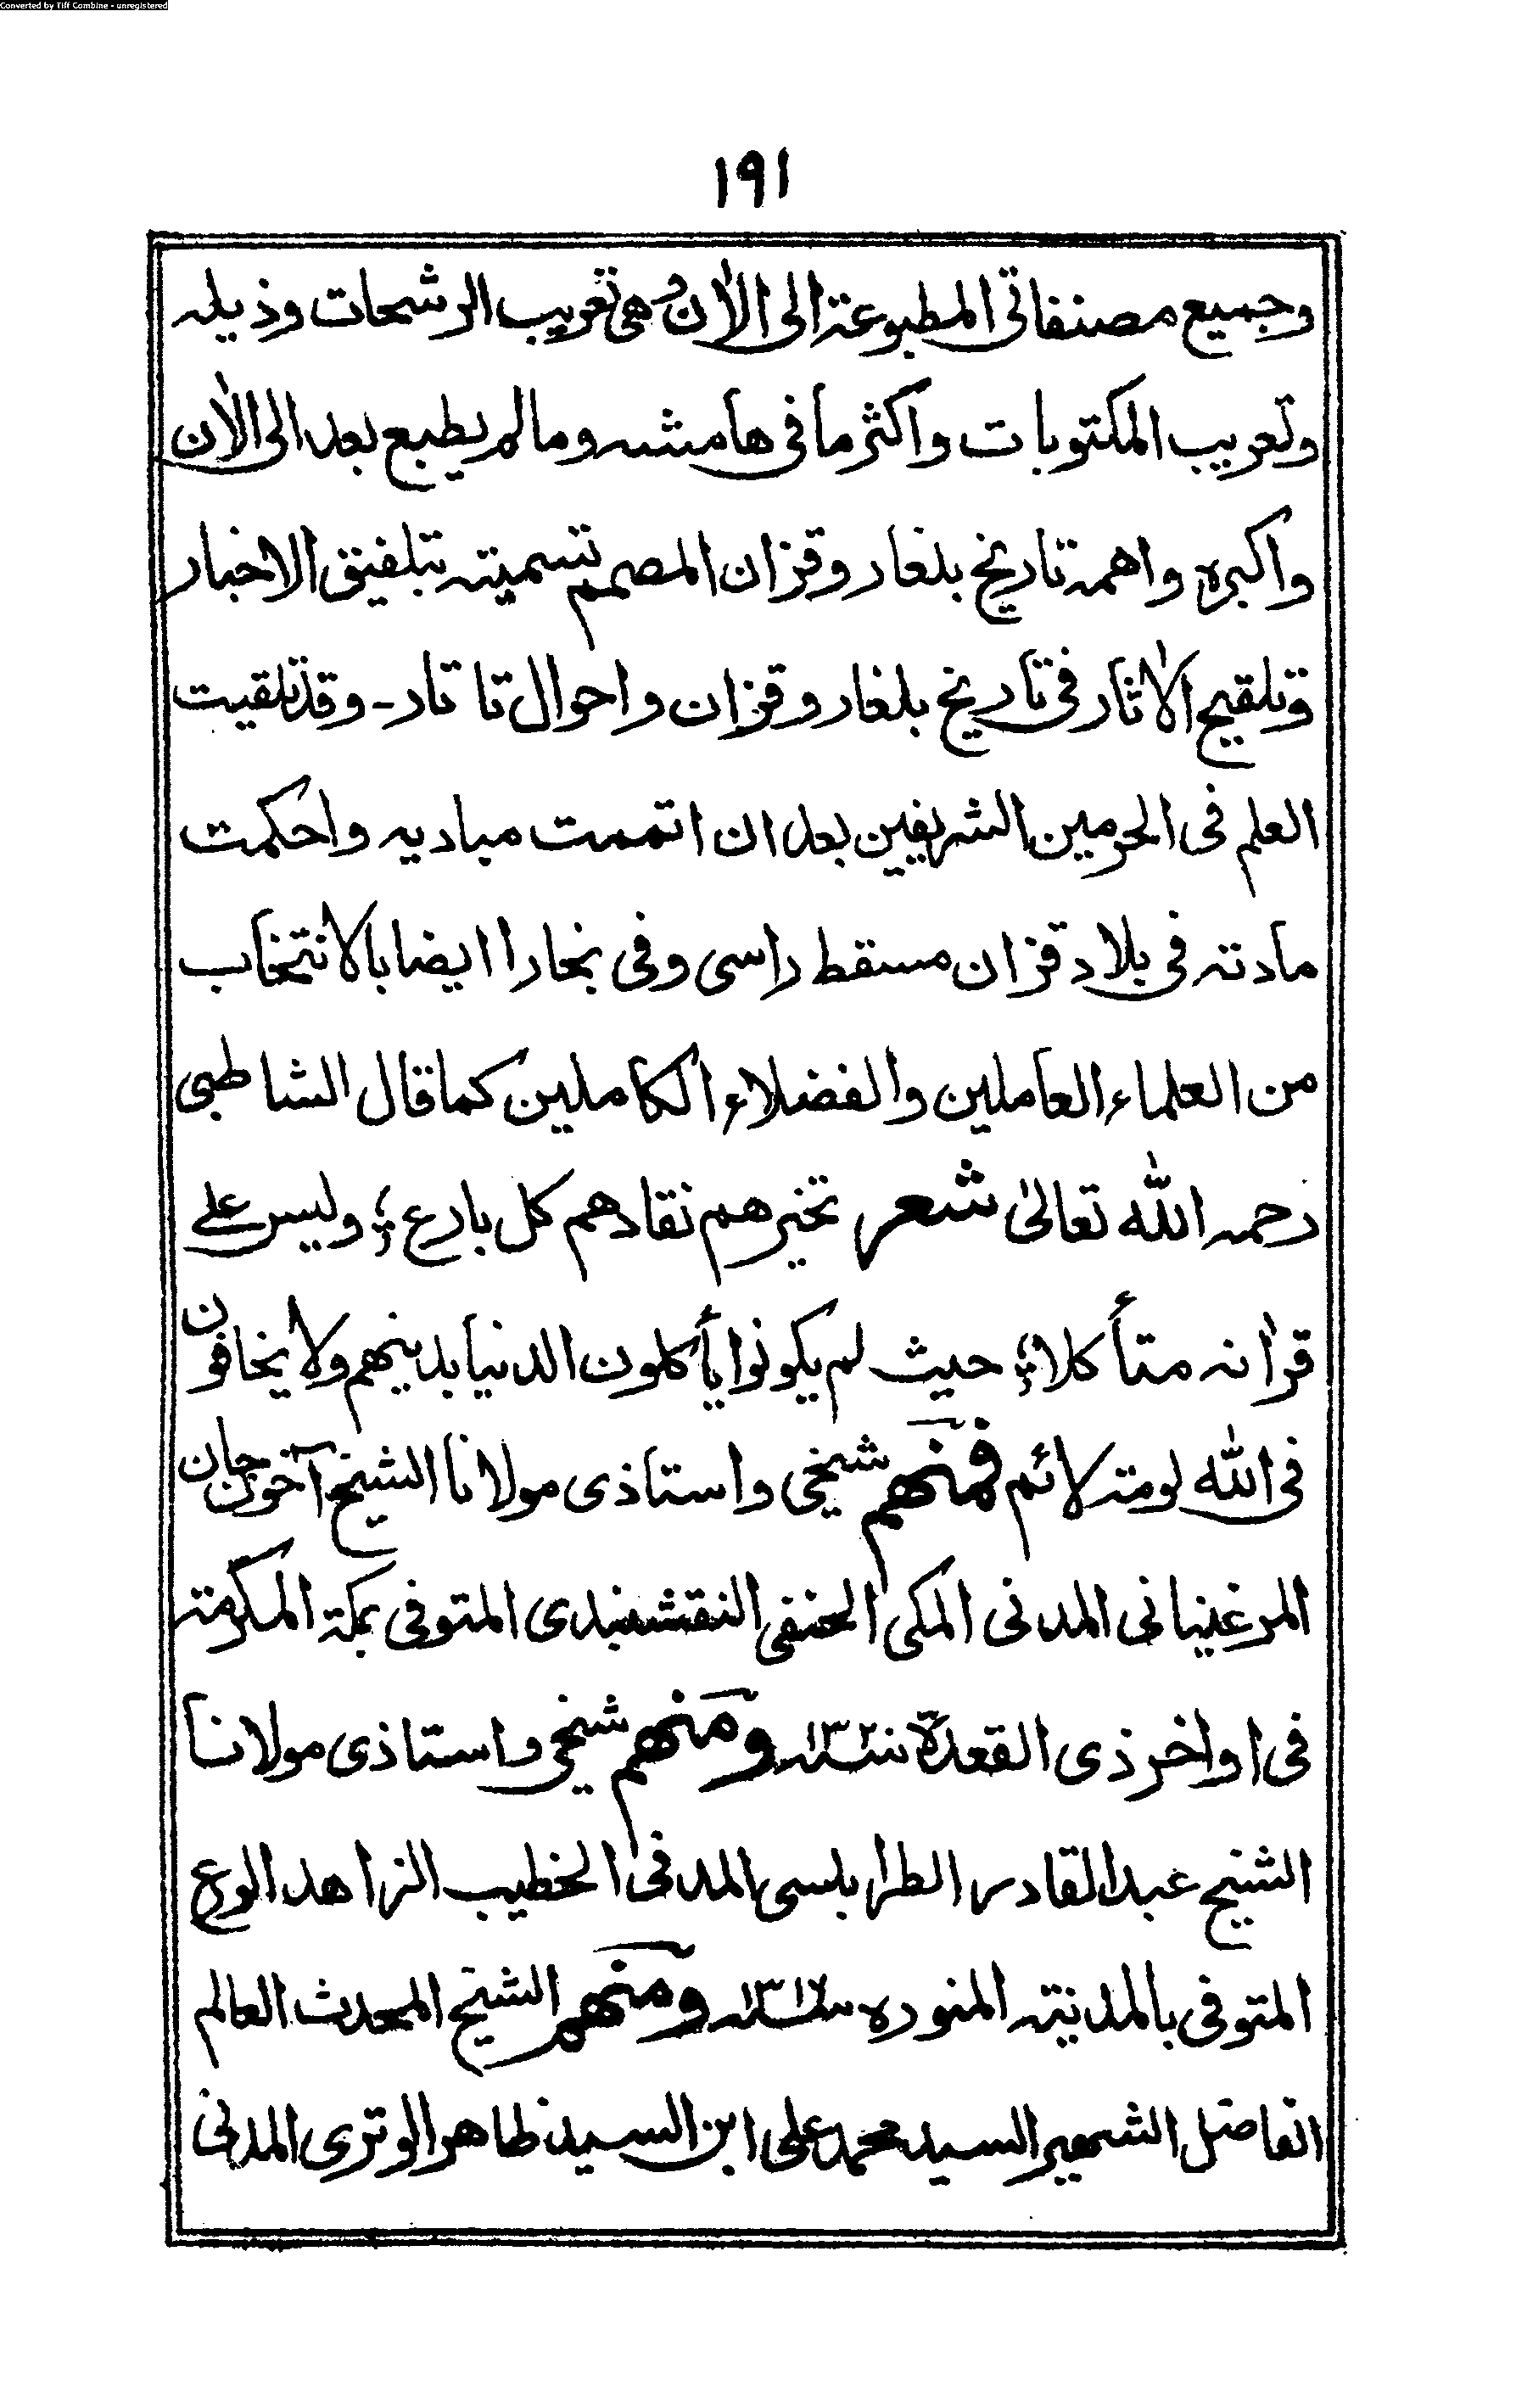 Converted by Tiff Combine - unregistered
١٩١
وجميع مصنفاتى المطبوعة الى الاٰن وهى تعريب الرشحات وذيله
وتعريب المكتوبات واكثر ما فى هامشه وما لم يطبع بعد الى الاٰن
واكبره واهمه تاريخ بلغار وقزان المصمم تسميته بتلفيق الاخبار
وتلقيح الاٰثار فى تاريخ بلغار وقزان واحوال تاتار ـ وقد تلقيت
العلم فى الحرمين الشريفين بعد ان اتممت مباديه واحكمت
مادته فى بلاد قزان مسقط راسى وفى بخارا ايضا بالانتخاب
من العلماء العاملين والفضلاء الكاملين كما قال الشاطبى
رحمه اللّٰه تعالىٰ شعر تخيرهم نقادهم كل بارع ؛ وليس علے
قراٰنه متأكلا ؛ حيث لم يكونوا يأكلون الدنيا بدينهم ولا يخافون
فى اللّٰه لومة لائم فمنهم شيخى واستاذى مولانا الشيخ آخون جان
المرغينانى المدنى المكى الحنفى النقشبندى المتوفى بمكة المكرمة
فى اواخر ذى القعدة سنة ١٣٢٠ ومنهم شيخى واستاذى مولانا
الشيخ عبد القادر الطرابلسى المدنى الخطيب الزاهد الورع
المتوفى بالمدينة المنوره سنة ومنهم الشيخ المحدث العالم
الفاضل الشهير السيد محمد على ابن السيد ظاهر الوترى المدنى